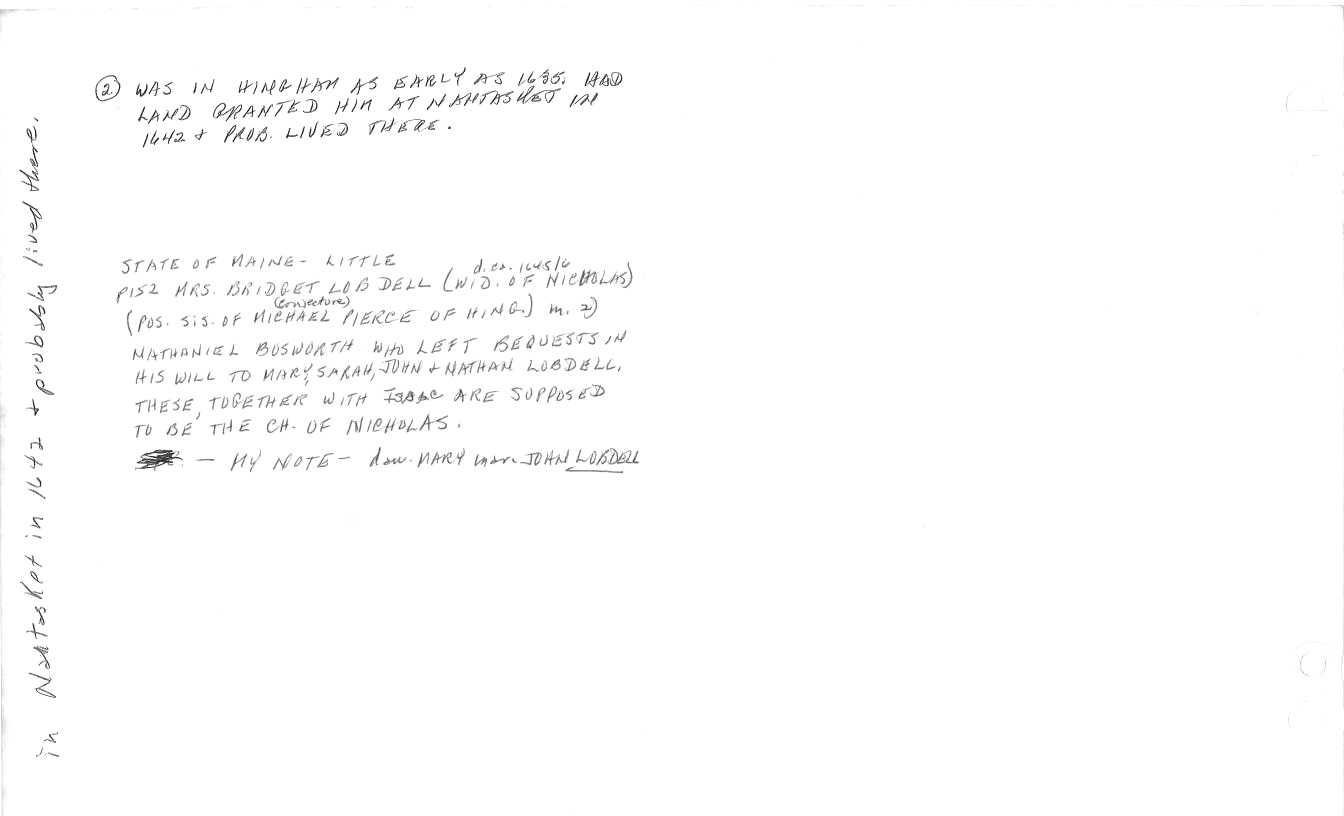 ② WAS IN HINGHAM AS EARLY AS 1635. HAD
LAND GRANTED HIM AT NANTASKET IN
1642 & PROB. LIVED THERE.
STATE OF MAINE - LITTLE
d. ca. 1645/6
P152 MRS. BRIDGET LOBDELL (WID. OF NICHOLAS)
(conjecture)
(POS. SIS. OF MICHAEL PIERCE OF HING.) m. 2)
NATHANIEL BOSWORTH WHO LEFT BEQUESTS IN
HIS WILL TO MARY, SARAH, JOHN & NATHAN LOBDELL.
THESE, TOGETHER WITH ISAAC ARE SUPPOSED
TO BE THE CH. OF NICHOLAS.
— MY NOTE — dau. MARY mar. JOHN LOBDELL
in Nantasket in 1642 & probably lived there.